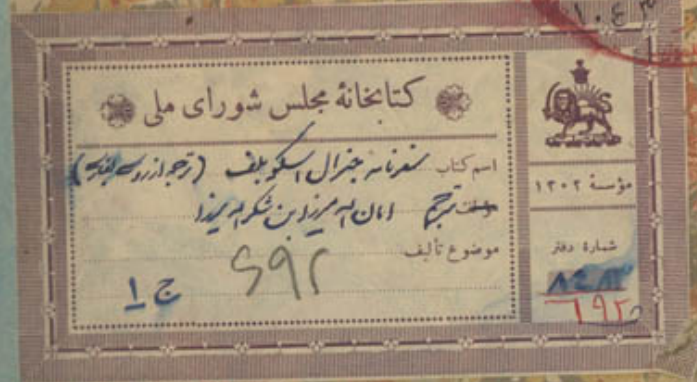 ۱۰۴۳
کتابخانهٔ مجلس شورای ملی
اسم کتاب سفرنامه جنرال اسکوبلف (ترجمه از روسی بفارسی)
مؤلف مترجم امان اله میرزا ابن شکراله میرزا
موضوع تألیف
۶۹۲
ج ۱
مؤسسهٔ ۱۳۰۲
شمارهٔ دفتر
۶۹۲